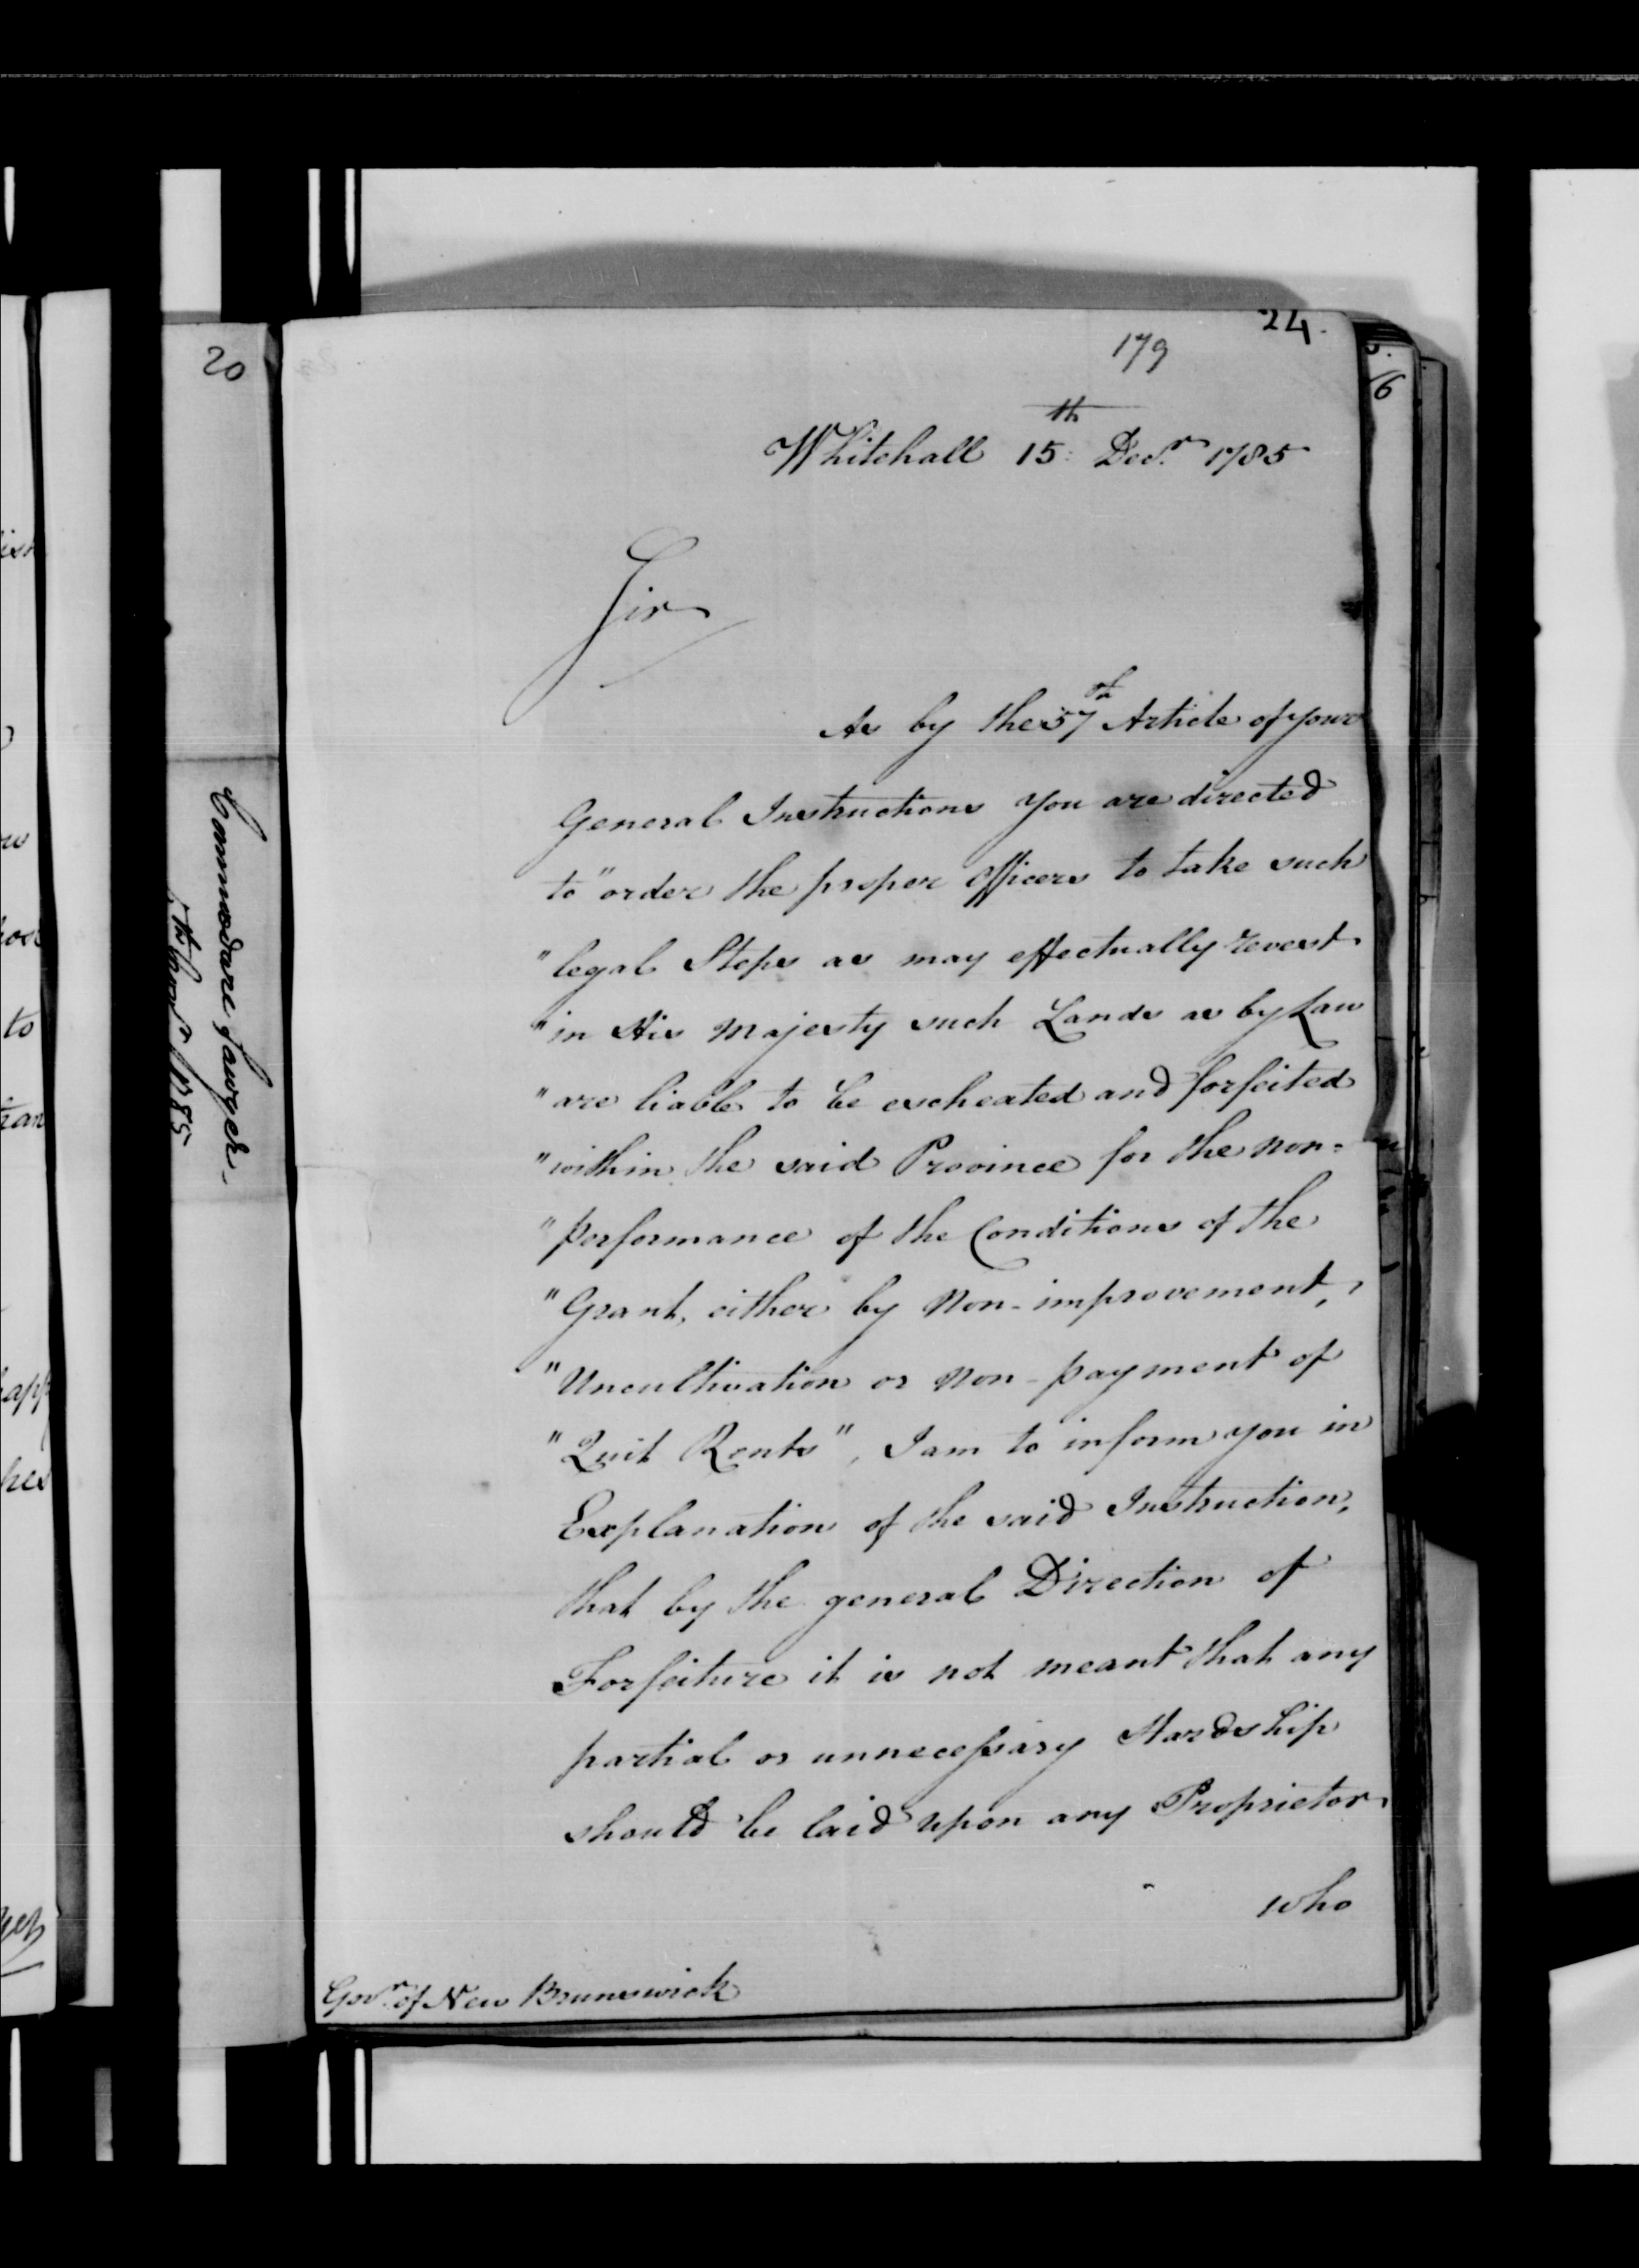 24.
179
20
Whitehall 15:th Decr. 1785
Sir
As by the 57th Article of your
General Instructions you are directed
to "order the proper Officers to take such
"legal Steps as may effectually revest
"in His Majesty such Lands as by Law
"are liable to be escheated and forfeited
"within the said Province for the non-
"performance of the Conditions of the
"Grant, either by Non-improvement,
"Uncultivation or Non-payment of
"Quit Rents", I am to inform you in
Explanation of the said Instruction,
that by the general Direction of
Forfeiture it is not meant that any
partial or unnecessary Hardship
should be laid upon any Proprietor
who
Govr. of New Brunswick
Commodore Sawyer
1785
to